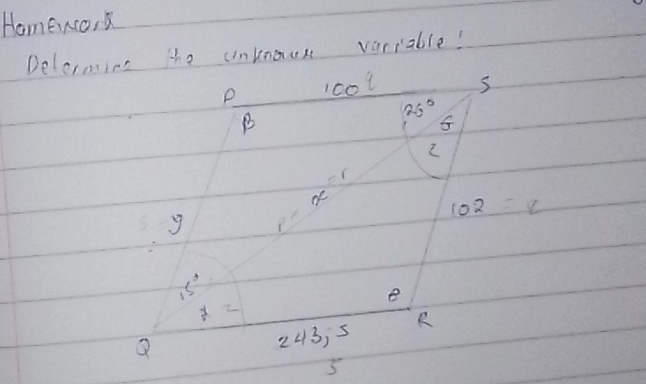 Homework
Determine the unknown variable!
P 100 q S
B 25° G
2
x = r
p =
y
102 = q
15°
θ
Q 243,5 R
s